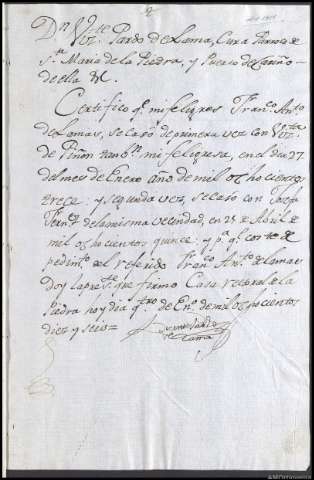 2
Dn Vte Pardo de Lama, Cura Parroco de
Sta Maria de la Piedra, y Puerto de Cariño
de ella &c.
Certifico qe mi feligres Franco Anto
de Lomas, se casó de primera vez con Vta
de Piñon tambn mi feligresa, en el dia 27
del mes de Enero año de mil ochocientos
trece: y segunda vez, se caso con Josefa
Fernz de la misma vecindad, en 25 de Abril de
mil ochocientos quince: y pa qe conste de
pedimto del referido Franco Anto de Lamas
doy la preste que firmo Casa rectoral de la
Piedra hoy dia qtro de Eno de mil ochocientos
diez y seis=
Vicente Pardo
de Lama